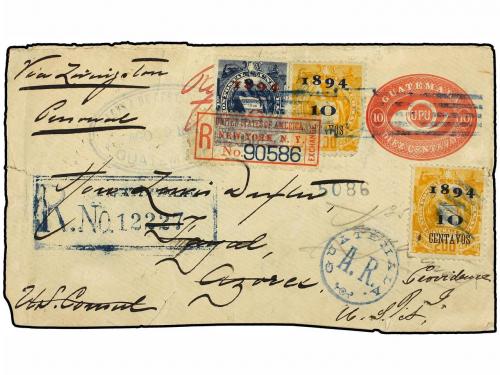 Via Livingston
Personal
GUATEMALA
10 UPU 10
DIEZ CENTAVOS
1894
1894
10
CENTAVOS
R
UNITED STATES OF AMERICA
NEW-YORK, N.Y.
No. 90586
EXCHANGE
5086
R. No. 12227
Hon. Louis
Fayal
Azores
1894
10
CENTAVOS
200
GUATEMALA
A. R.
U.S. Consul
Providence
R. I.
U. S. A.